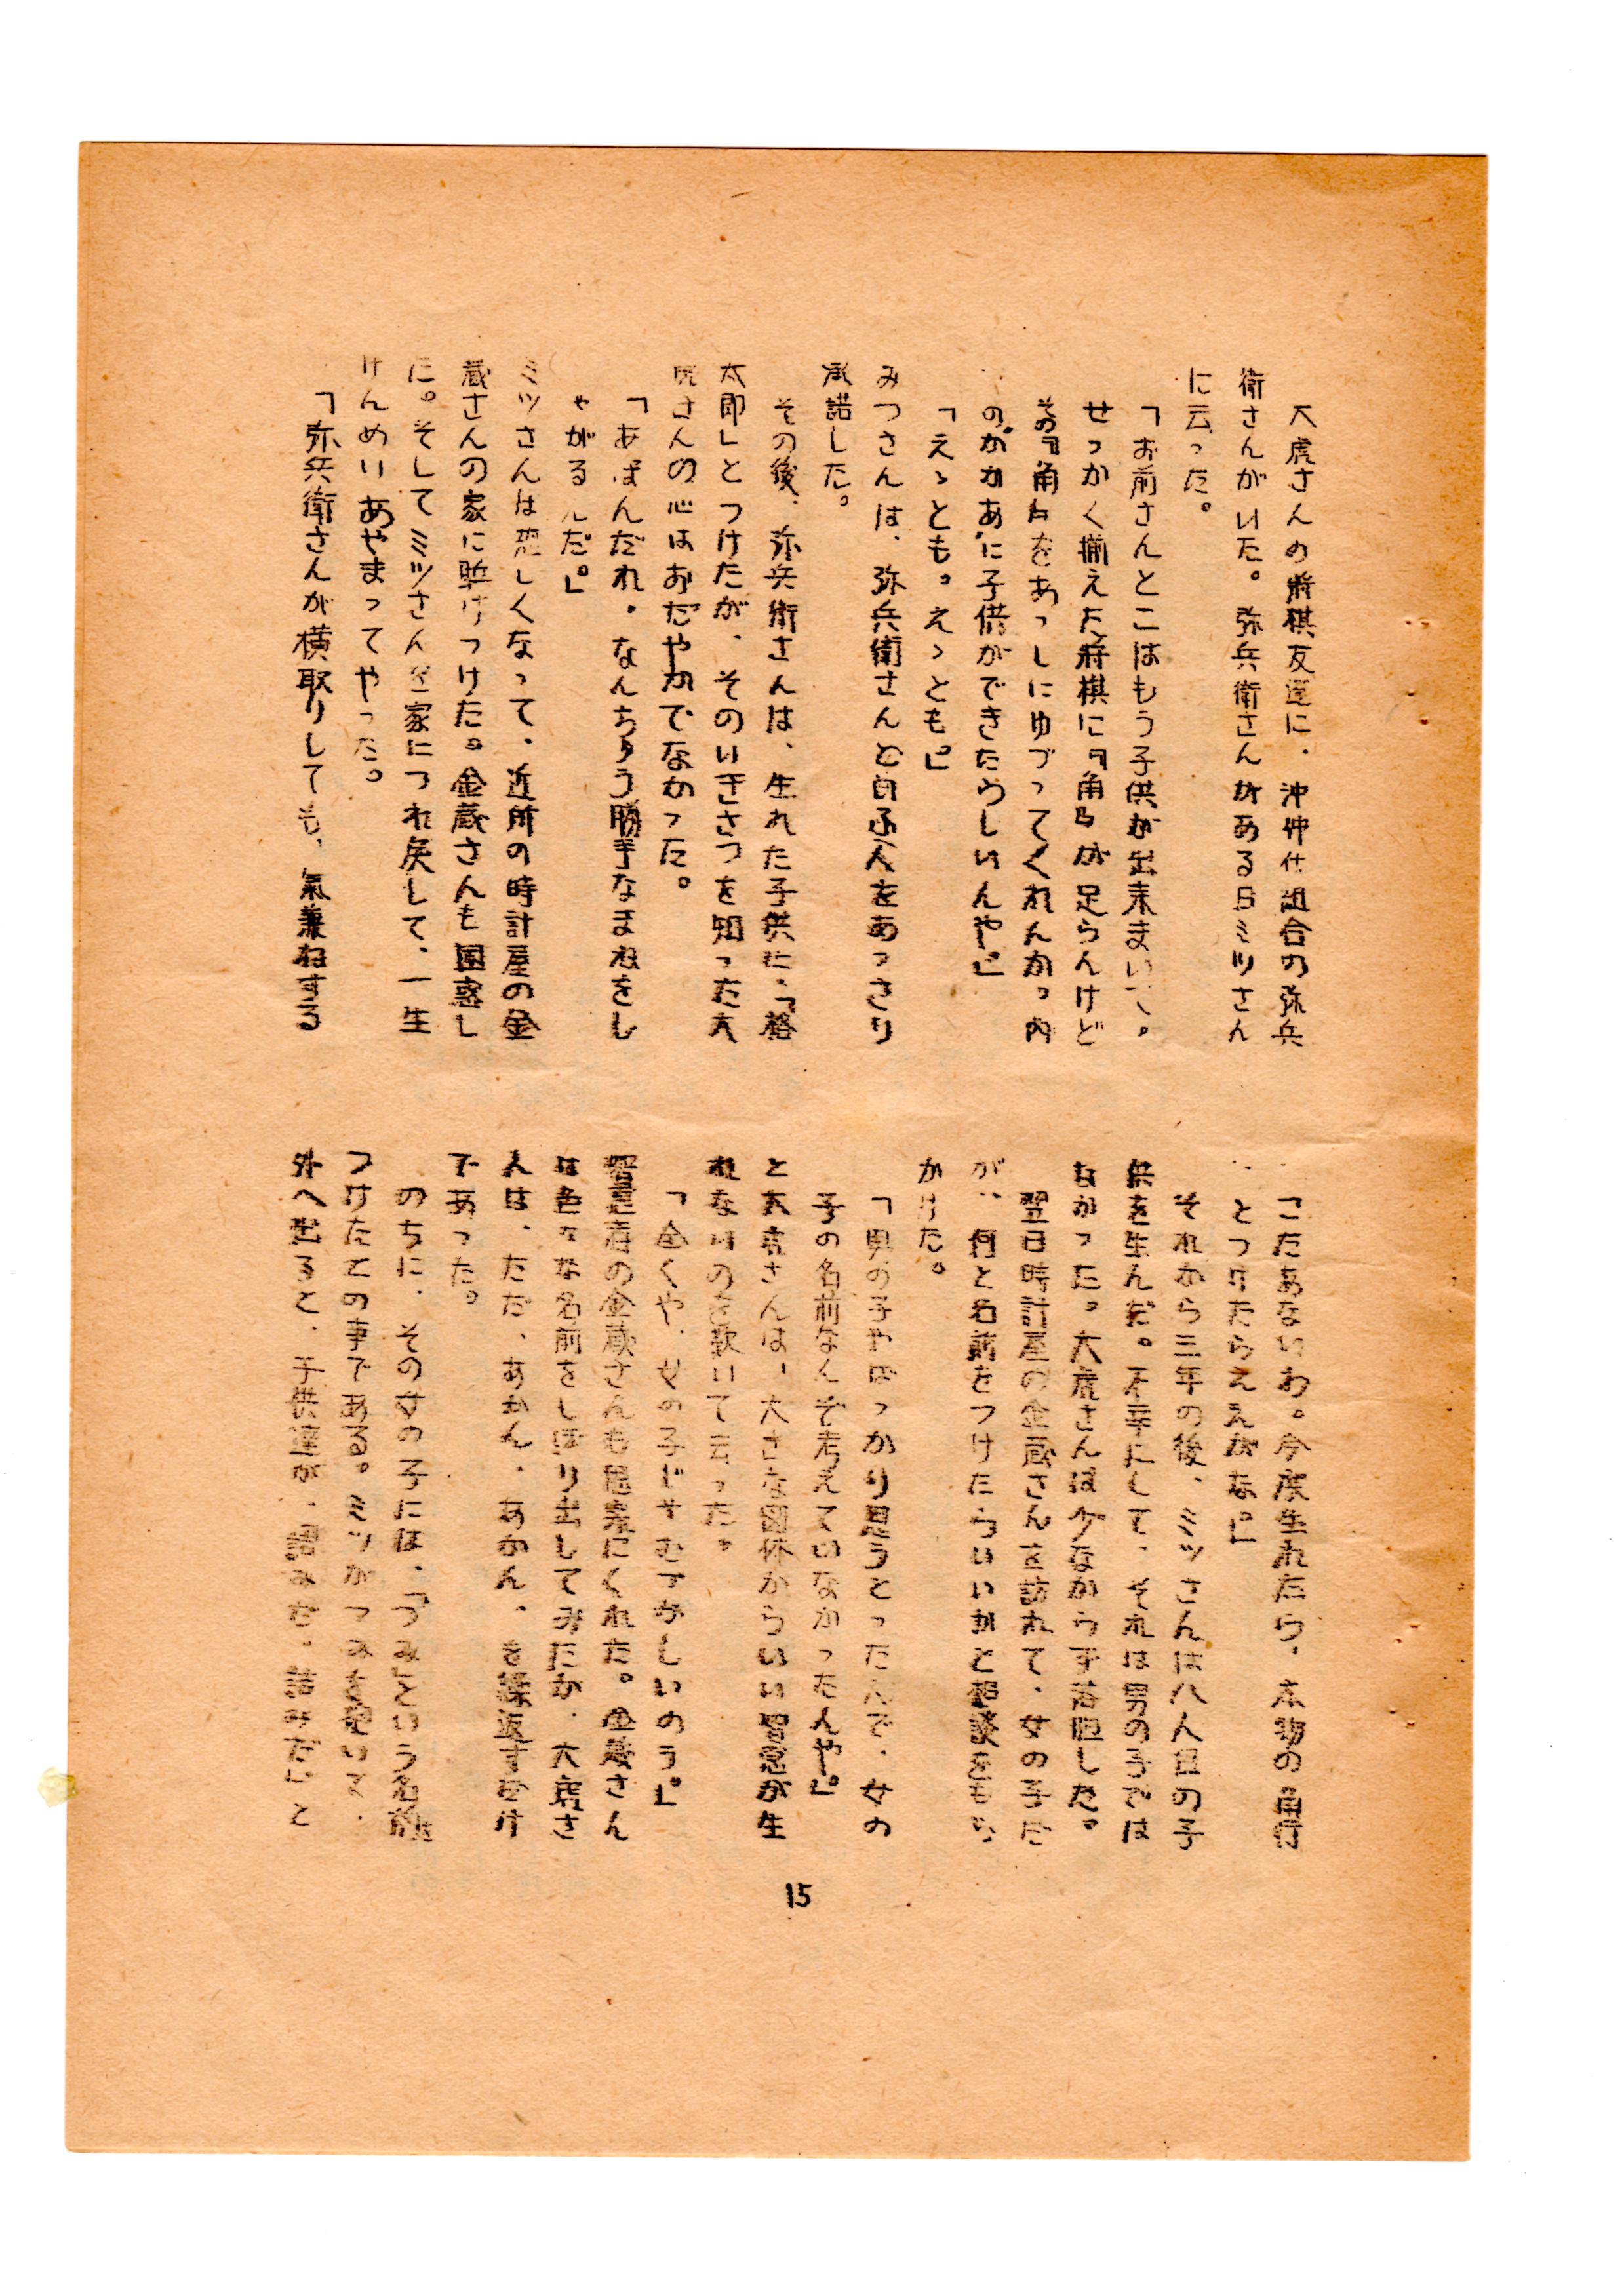 大虎さんの将棋友達に、沖仲仕組合の弥兵
衛さんがいた。弥兵衛さんがある日ミツさん
に云った。
「お前さんとこはもう子供が出来まいて。
せっかく揃えた将棋に『角』が足らんけど
その『角』をあっしにゆづってくれんか。内
のかかあに子供ができたらしいんや」
「えゝとも。えゝとも。」
みつさんは、弥兵衛さんと白ふ人をあっさり
承諾した。
その後、弥兵衛さんは、生れた子供に、「格
太郎」とつけたが、そのいきさつを知った大
虎さんの心はおだやかでなかった。
「あぽんだれ。なんちゅう勝手なまねをし
ゃがるんだ。」
ミツさんは恐しくなって、近所の時計屋の金
蔵さんの家に駈けつけた。金蔵さんも困惑し
た。そしてミツさんを家につれ戻して、一生
けんめいあやまってやった。
「弥兵衛さんが横取りしても、氣兼ねする
こたあないわ。今度生れたら、本物の角行
とつけたらええがな。」
それから三年の後、ミツさんは八人目の子
供を生んだ。不幸にして、それは男の子では
なかった。大虎さんは少なからず落胆した。
翌日時計屋の金蔵さんを訪れて、女の子だ
が、何と名前をつけたらいいかと相談をもち
かけた。
「男の子やばっかり思うとったんで、女の
子の名前なんぞ考えていなかったんや。」
と大虎さんは、大きな図体からいい智恵が生
れないのを歎いて云った。
「全くや、女の子じゃむつかしいのう。」
智恵者の金蔵さんも思案にくれた。金蔵さん
は色々な名前をしぼり出してみたが、大虎さ
んは、ただ、あかん、あかん、を繰返すだけ
であった。
のちに、その女の子には、「つみ」という名前
つけたとの事である。ミツがつみを抱いて、
外へ出ると、子供達が、詰みだ、詰みだ」と
15